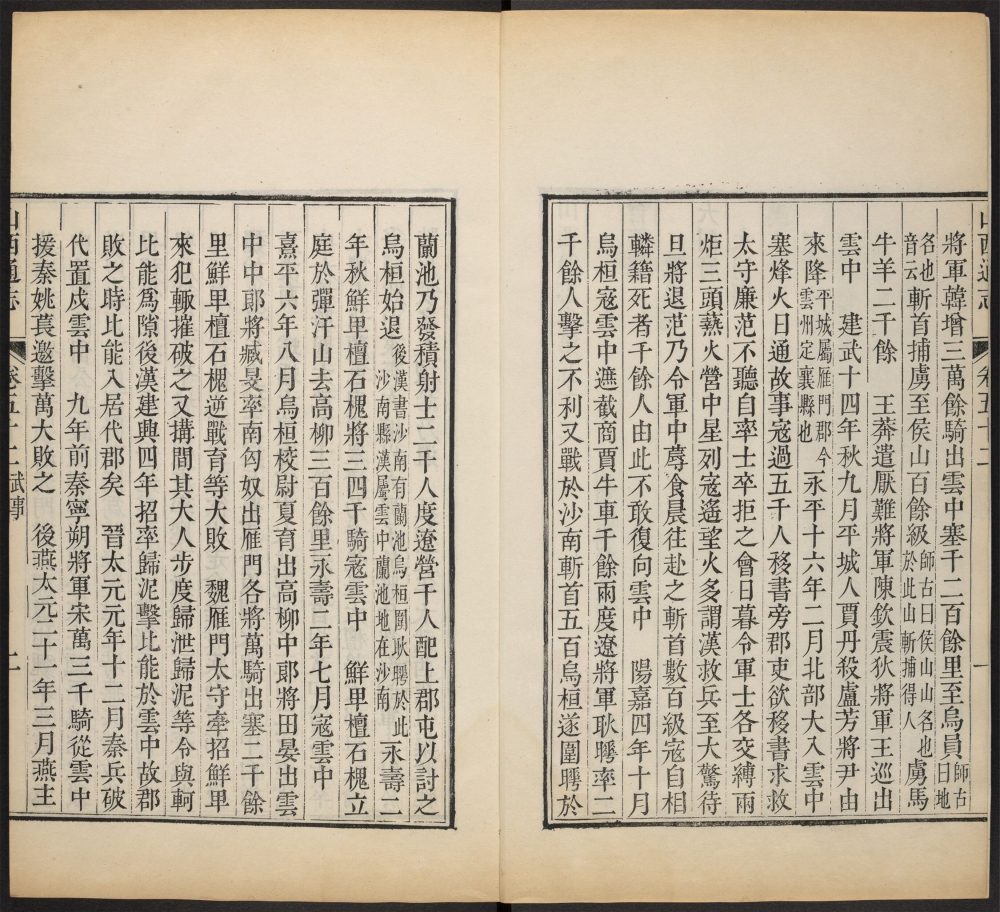 山西通志 卷五十二 一
將軍韓增三萬餘騎出雲中塞千二百餘里至烏員師古曰地
名也音云斬首捕虜至侯山百餘級師古曰侯山山名也於此山斬捕得人虜馬
牛羊二千餘 王莽遣厭難將軍陳欽震狄將軍王巡出
雲中 建武十四年秋九月平城人賈丹殺盧芳將尹由
來降平城屬雁門郡今雲州定襄縣也 永平十六年二月北部大入雲中
塞烽火日通故事寇過五千人移書旁郡吏欲移書求救
太守廉范不聽自率士卒拒之會日暮令軍士各交縛兩
炬三頭爇火營中星列寇遙望火多謂漢救兵至大驚待
旦將退范乃令軍中蓐食晨往赴之斬首數百級寇自相
轔籍死者千餘人由此不敢復向雲中 陽嘉四年十月
烏桓寇雲中遮截商賈牛車千餘兩度遼將軍耿曄率二
千餘人擊之不利又戰於沙南斬首五百烏桓遂圍曄於
蘭池乃發積射士二千人度遼營千人配上郡屯以討之
烏桓始退後漢書沙南有蘭池烏桓圍耿曄於此沙南縣漢屬雲中蘭池地在沙南 永壽二
年秋鮮卑檀石槐將三四千騎寇雲中 鮮卑檀石槐立
庭於彈汗山去高柳三百餘里永壽二年七月寇雲中
熹平六年八月烏桓校尉夏育出高柳中郎將田晏出雲
中中郎將臧旻率南匈奴出雁門各將萬騎出塞二千餘
里鮮卑檀石槐逆戰育等大敗 魏雁門太守牽招鮮卑
來犯輒摧破之又搆間其大人步度歸泄歸泥等令與軻
比能爲隙後漢建興四年招率歸泥擊比能於雲中故郡
敗之時比能入居代郡矣 晉太元元年十二月秦兵破
代置戍雲中 九年前秦寧朔將軍宋萬三千騎從雲中
援秦姚萇邀擊萬大敗之 後燕太元二十一年三月燕主
山西通志 卷五十二 二